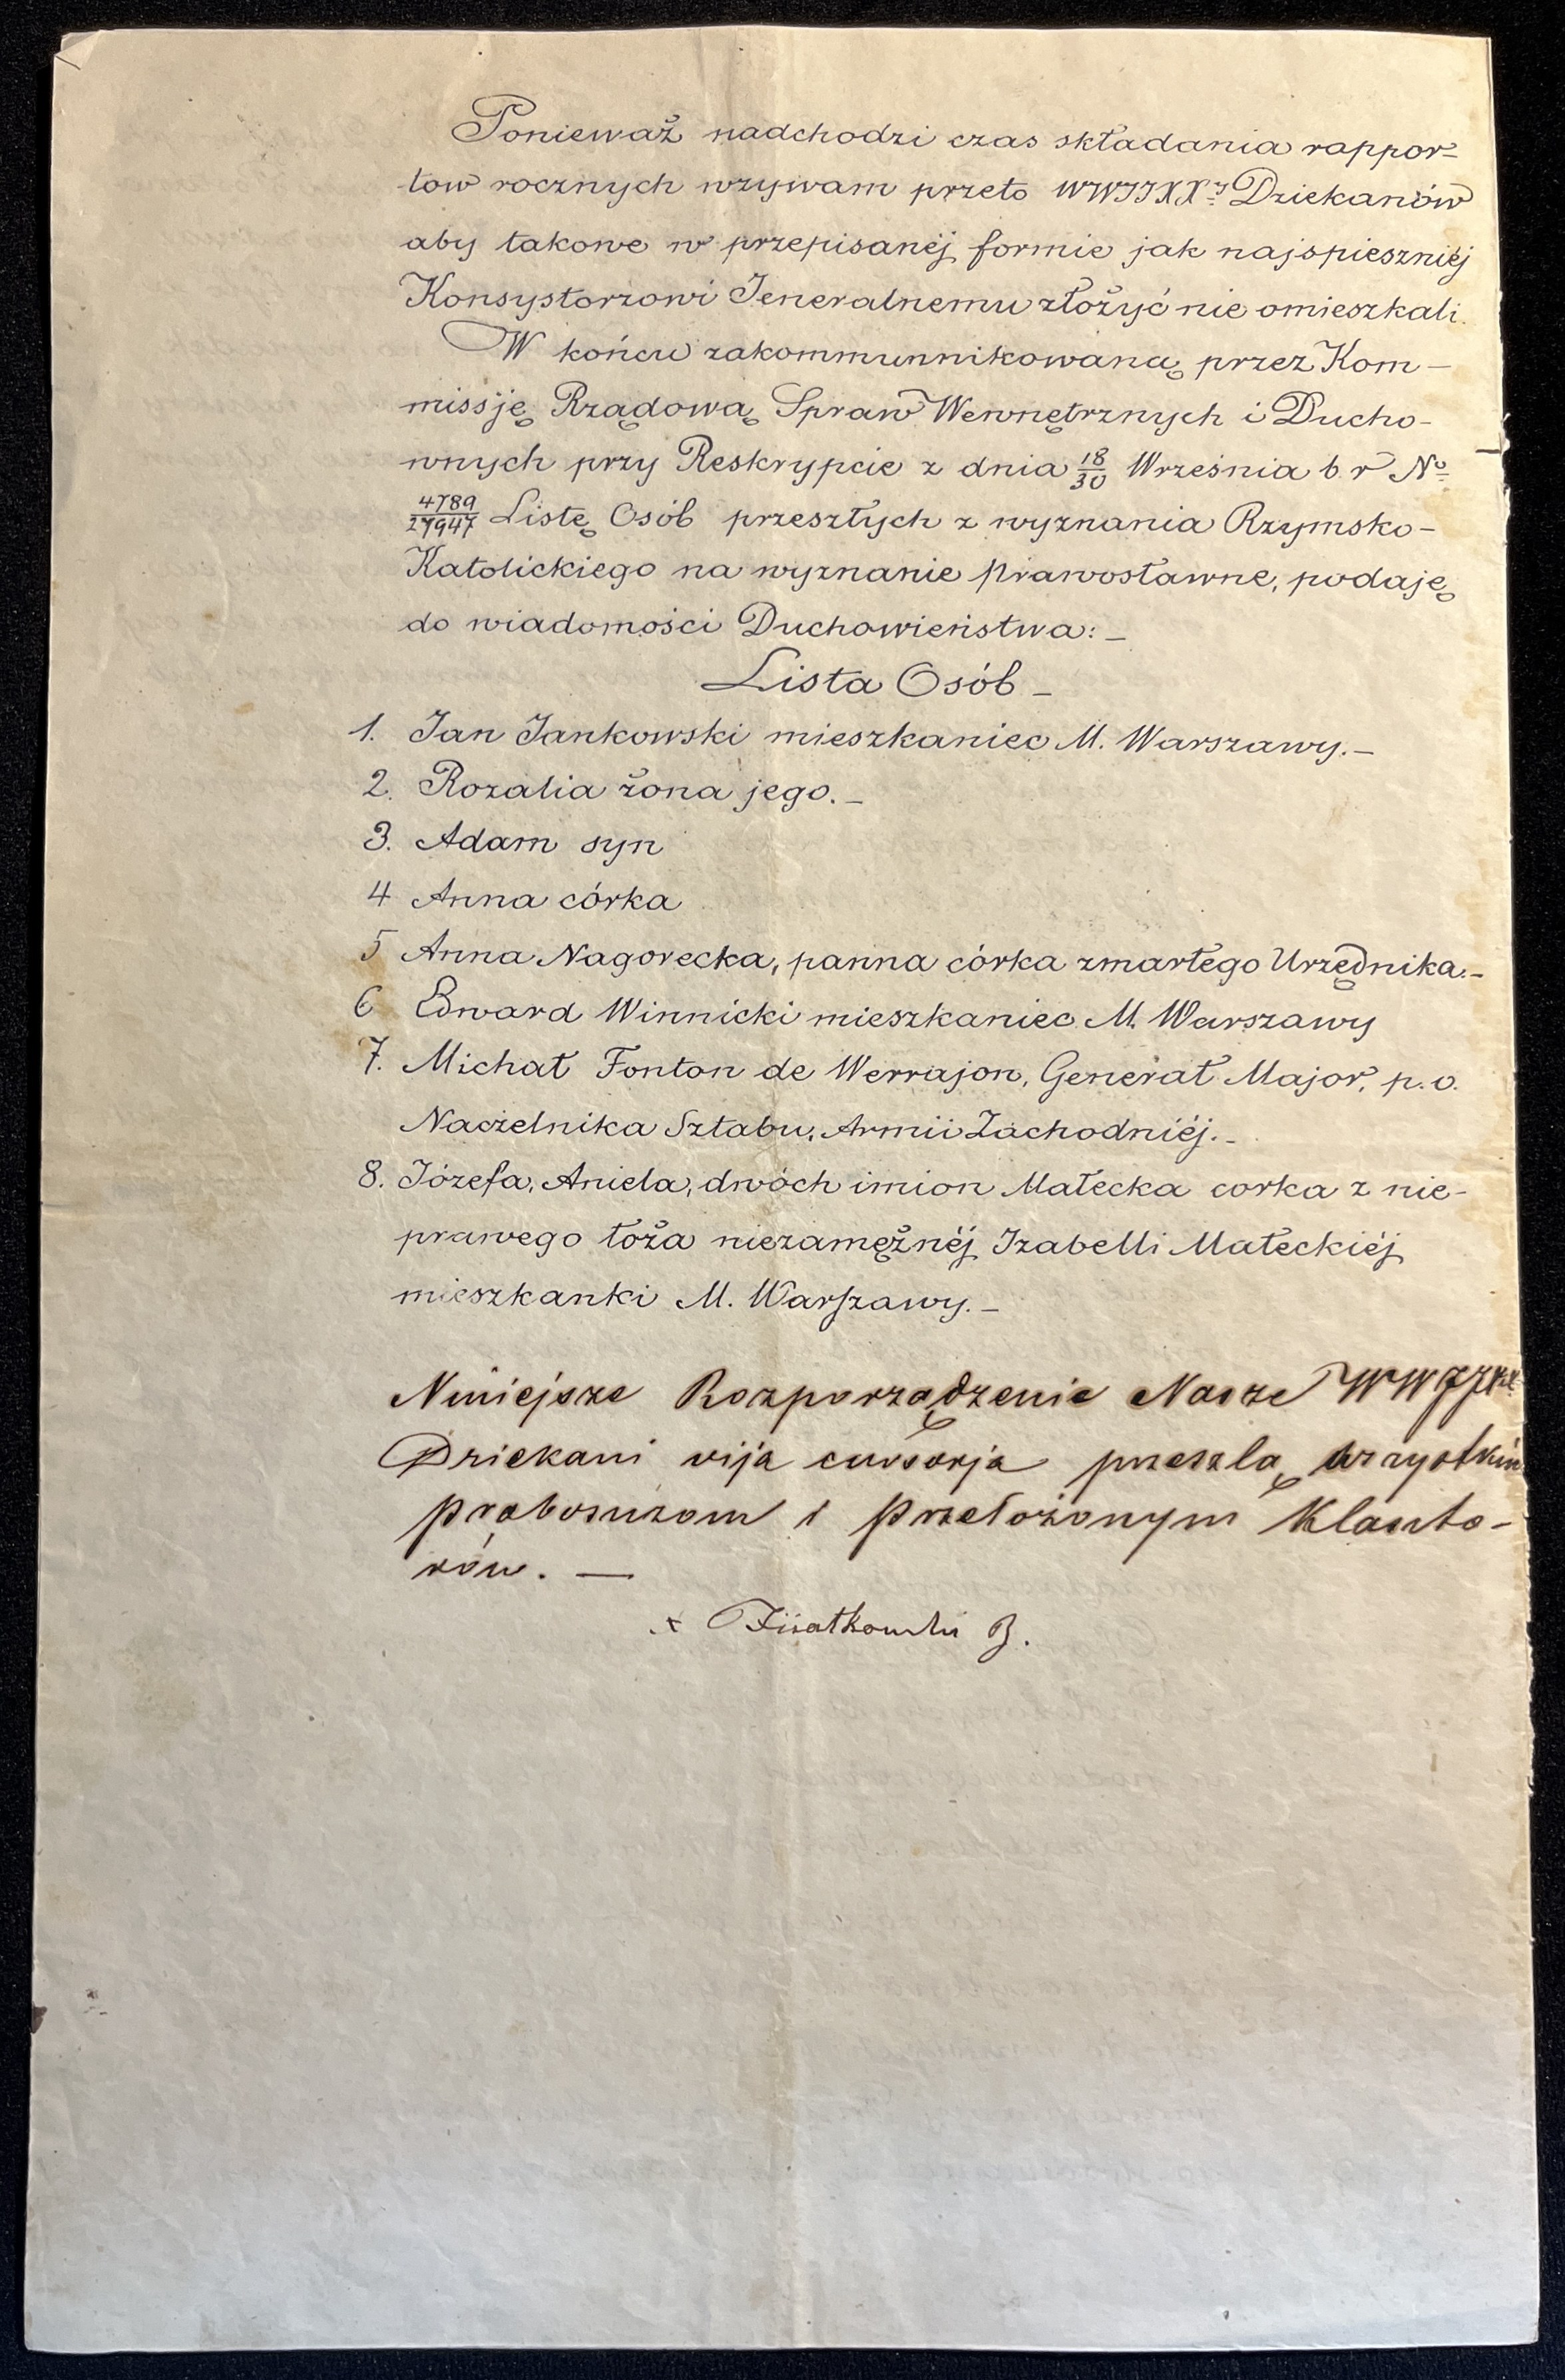 Poniewaž nadchodzi czas składania rappor=
tow rocznych wzywam przeto WWJJXX.y Dziekanów
aby takowe w przepisanéj formie jak najspieszniéj
Konsystorzowi Jeneralnemu złožyć nie omieszkali.
W końcu zakommunnikowaną przez Kom-
missję Rządową Spraw Wewnętrznych i Ducho-
wnych przy Reskrypcie z dnia 18/30 Września b r No
4789/27947 Listę Osób przeszłych z wyznania Rzymsko-
Katolickiego na wyznanie prawosławne, podaję
do wiadomości Duchowieństwa: –
Lista Osób –
1. Jan Jankowski mieszkaniec M. Warszawy. –
2. Rozalia žona jego. –
3. Adam syn
4 Anna córka
5 Anna Nagorecka, panna córka zmarłego Urzędnika. –
6 Edward Winnicki mieszkaniec M. Warszawy
7. Michał Fonton de Werrajon, Generał Major, p. o.
Naczelnika Sztabu, Armii Zachodniéj. –
8. Józefa, Aniela, dwóch imion Małecka corka z nie-
prawego łoža niezamęžnéj Izabelli Małeckiéj
mieszkanki M. Warszawy. –
Niniejsze Rozporządzenie Nasze WWJJXX
Dziekani vija cursorja prześlą wszystkim
proboszczom i przełożonym Klaszto-
rów. —
x B.